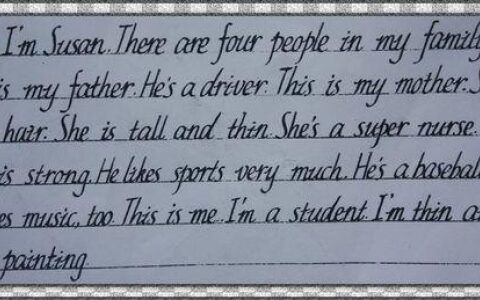 I'm Susan. There are four people in my family
is my father. He's a driver. This is my mother. S
hair. She is tall and thin. She's a super nurse.
is strong. He likes sports very much. He's a baseball
es music, too. This is me. I'm a student. I'm thin a
painting